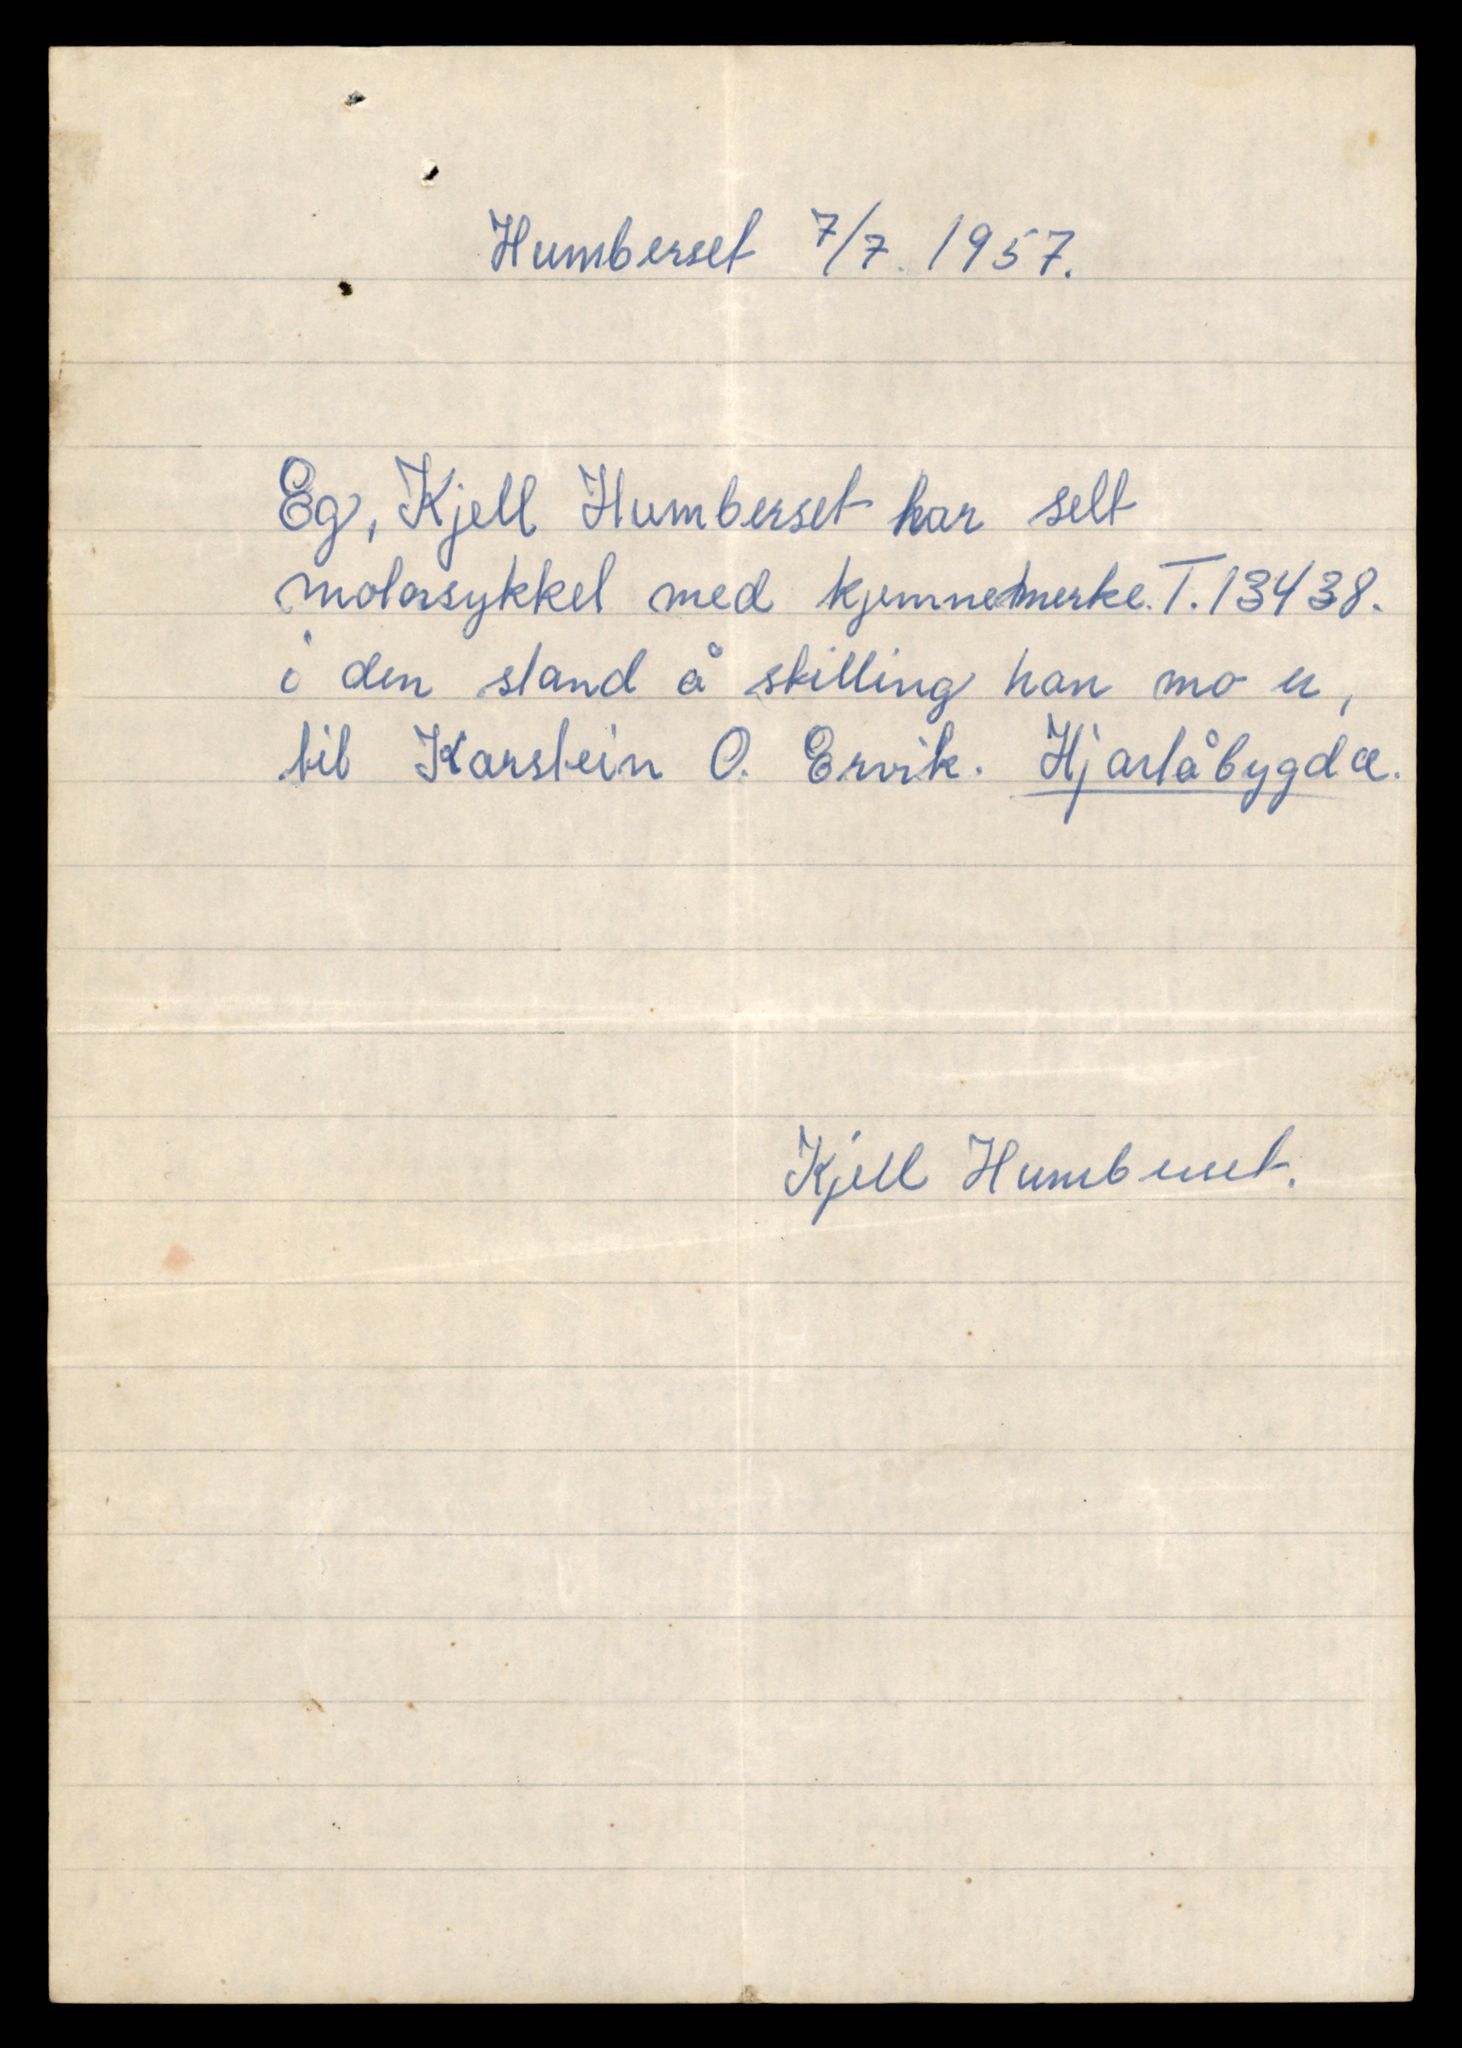 Humberset 7/7. 1957.
Eg, Kjell Humberset har selt
motorsykkel med kjennemerke. T. 13438.
i den stand å skilling han no er,
til Karstein O. Ervik. Hjartåbygda.
Kjell Humberset.